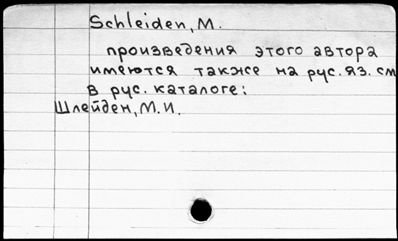 Schleiden, M.
произведения этого автора
имеются также на рус. яз. см
в рус. каталоге:
Шлейден, М. И.